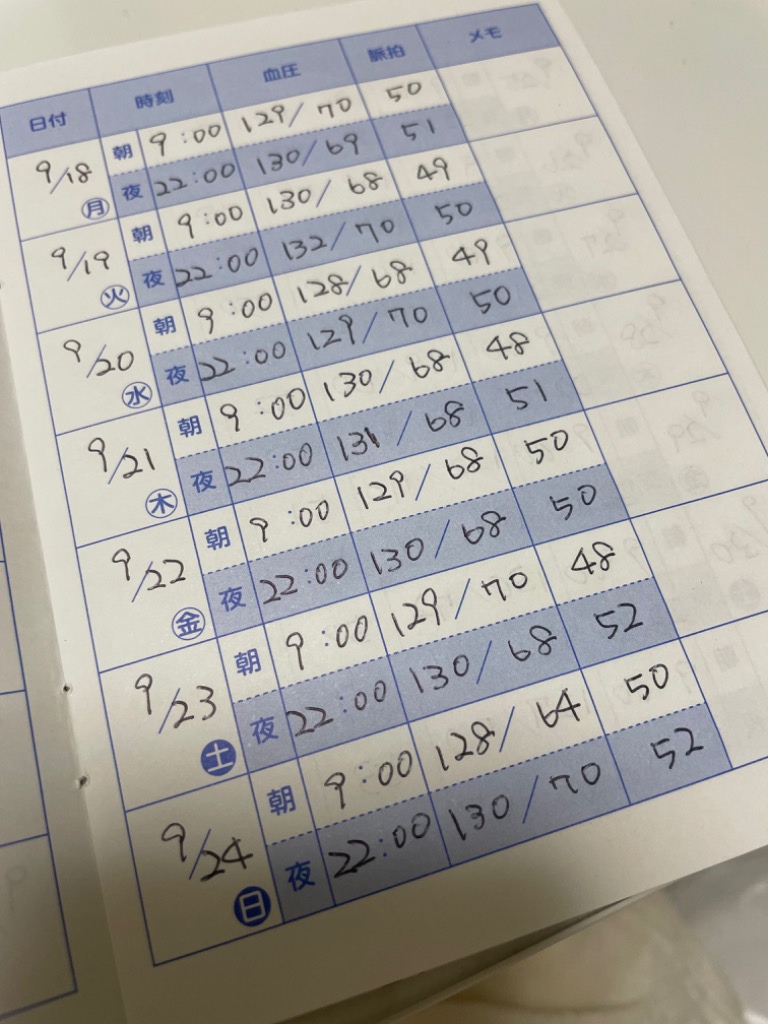 日付 時刻 血圧 脈拍 メモ
9/18 月 朝 9:00 129/70 50
夜 22:00 130/69 51
9/19 火 朝 9:00 130/68 49
夜 22:00 132/70 50
9/20 水 朝 9:00 128/68 49
夜 22:00 129/70 50
9/21 木 朝 9:00 130/68 48
夜 22:00 131/68 51
9/22 金 朝 9:00 129/68 50
夜 22:00 130/68 50
9/23 土 朝 9:00 129/70 48
夜 22:00 130/68 52
9/24 日 朝 9:00 128/64 50
夜 22:00 130/70 52